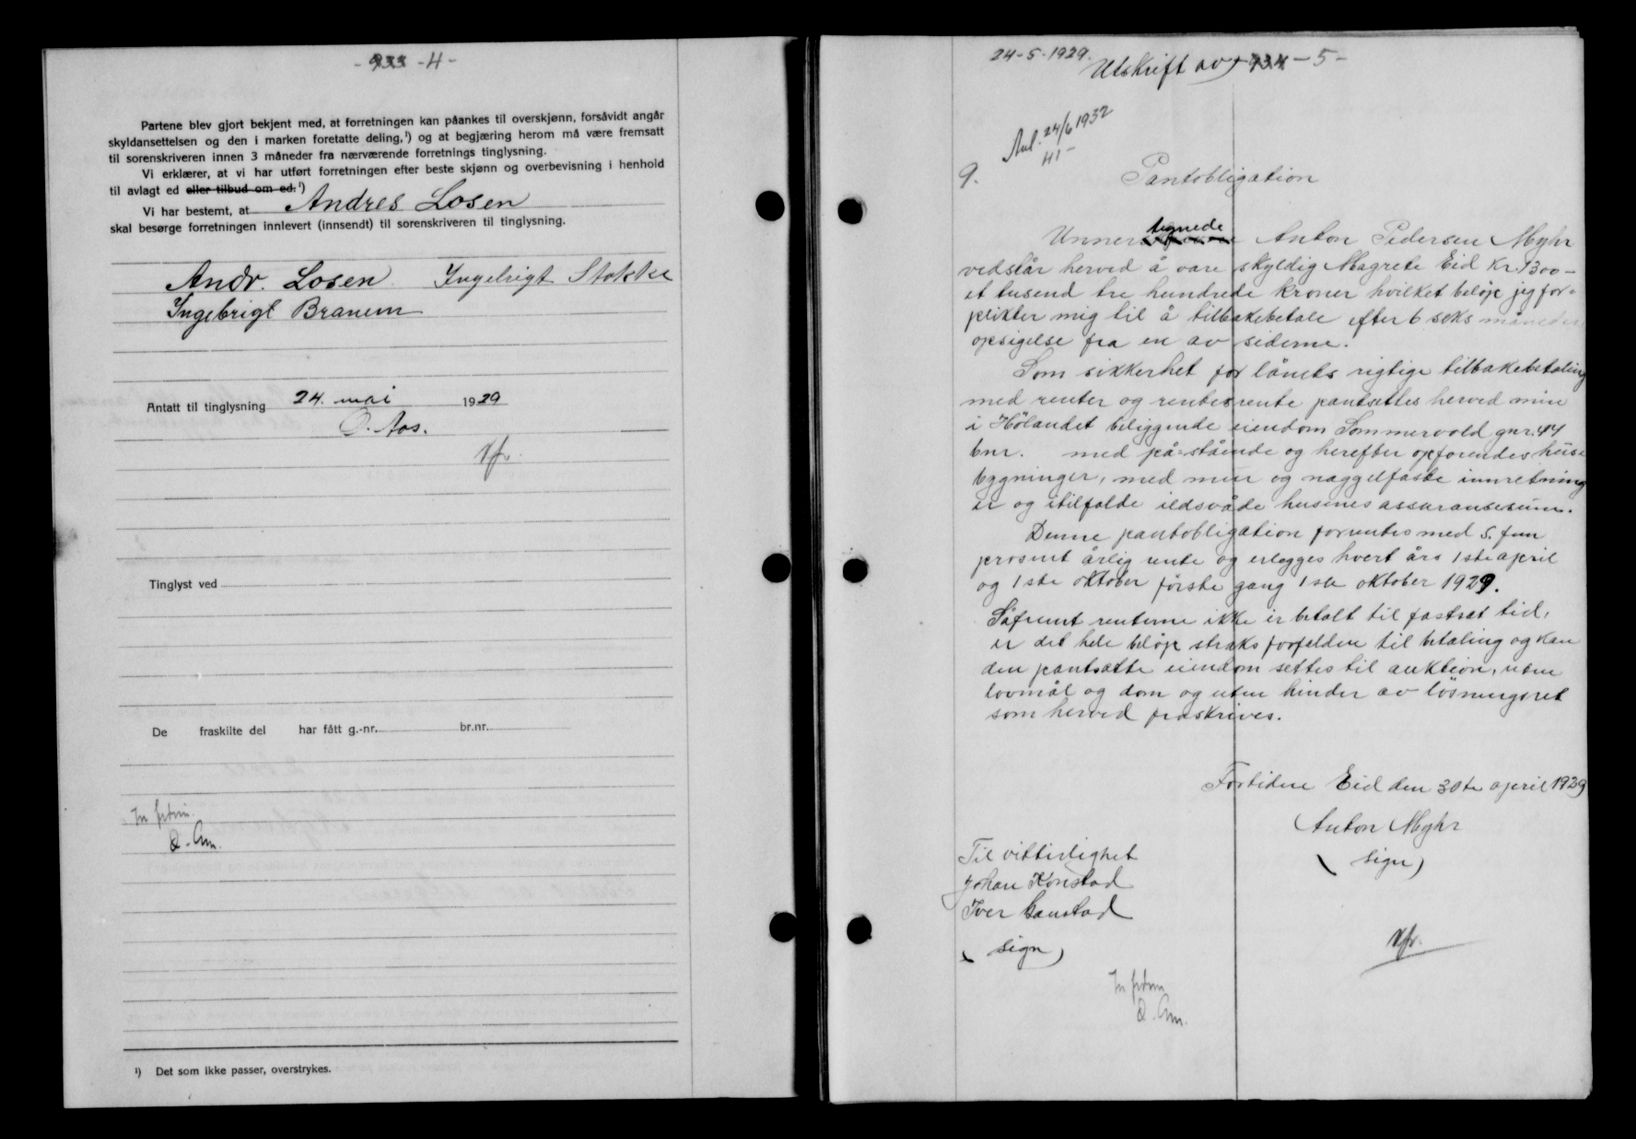 - 933 - 4 -
Partene blev gjort bekjent med, at forretningen kan påankes til overskjønn, forsåvidt angår
skyldansettelsen og den i marken foretatte deling,¹) og at begjæring herom må være fremsatt
til sorenskriveren innen 3 måneder fra nærværende forretnings tinglysning.
Vi erklærer, at vi har utført forretningen efter beste skjønn og overbevisning i henhold
til avlagt ed eller tilbud om ed.¹)
Vi har bestemt, at Andres Losen
skal besørge forretningen innlevert (innsendt) til sorenskriveren til tinglysning.
Andr. Losen Ingebrigt Stokke
Ingebrigt Branem
Antatt til tinglysning 24. mai 1929
O. Aas.
Kfr.
Tinglyst ved
De fraskilte del har fått g.-nr. br.nr.
¹) Det som ikke passer, overstrykes.
24-5-1929. Utskrift av 934 - 5 -
Avl. 24/6 1932
41-
9. Pantobligation
Unnertegnede Anton Pedersen Myhr
vedstår herved å være skyldig Magrete Eid Kr. 1300 -
et tusend tre hundrede kroner hvilket beløp jeg for-
plikter mig til å tilbakebetale efter 6 seks måneders
opsigelse fra en av siderne.
Som sikkerhet for lånets rigtige tilbakebetaling
med renter og rentesrente pantsettes herved min
i Hölandet beliggende eiendom Sommervold gnr. 44
bnr. med på-stående og herefter opförendes huse
bygninger, med mur og naggelfaste innretning
er og itilfelde ildsvåde husenes assuransesum.
Denne pantobligation forrentes med 5. fem
prosent årlig rente og erlegges hvert års 1ste april
og 1ste oktober förste gang 1ste oktober 1929.
Såfremt renterne ikke er betalt til fastsat tid,
er det hele beløp straks forfalden til betaling og kan
den pantsatte eiendom settes til auktion, uten
lovmål og dom og uten hinder av lösningsret
som herved fraskrives.
Fortiden Eid den 30te april 1929
Anton Myhr
(sign)
Til vitterlighet
Johan Konstad
Iver Gaustad
(sign)
Kfr.